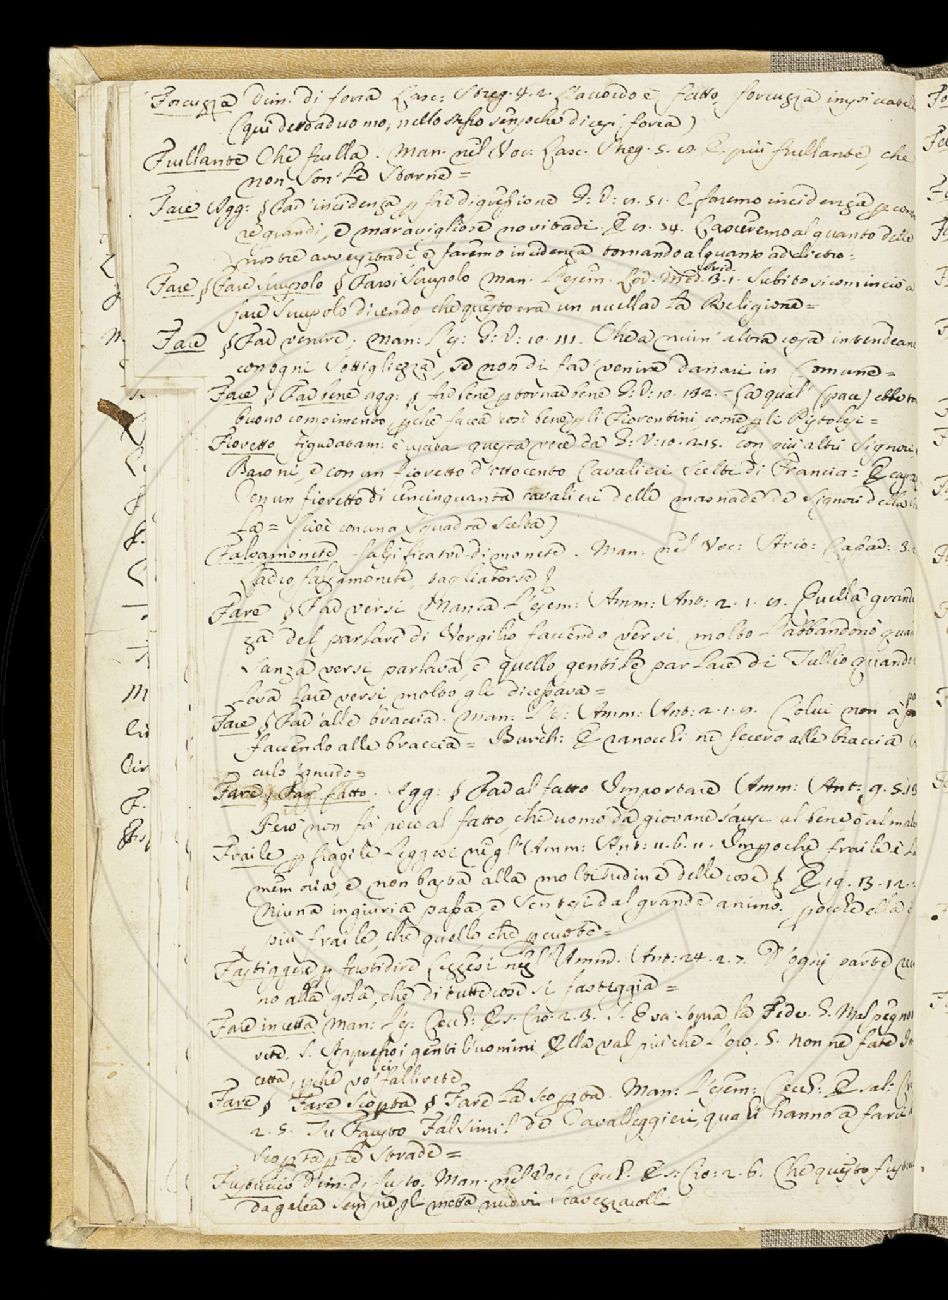 Forcuzza dim. di forca Lasc: Streg. 4. 2. Ravvedo è fatto, forcuzza impiccatell
(qui detto ad uomo, nello stesso senso che dicesi forca)
Frullante Che frulla. Man. nel Voc. Lasc. Streg. 5. E più frullante, che
non son le Starne =
Fare Agg: § Far incidenza p far digressione G: V: 11. 51. E faremo incidenza p cont
re grandi, e maravigliose novitadi E 11. 34. Lasceremo alquanto delle
nostre avversitadi e faremo incidenza tornando alquanto addietro =
Fare § Fare Scrupolo § Farsi Scrupolo Man. l'esem. Lod. Med. B. 1. Subito si cominciò a
fare Scrupolo dicendo che questo era un uccellar la Religione =
Fare § Far venire. Man: l'es: G: V: 10. 111. Che a niun' altra cosa intendeano
con ogni Sottigliezza, se non di far venire danari in Comune =
Fare § Far bene agg: § far bene p tornar bene G: V: 10. 132. = La qual (pace) ebbe
buono compimento, p che facea così bene p gli Fiorentini come p li Pistolesi =
Fioretto figuratam: è usita questa voce da G: V: 10. 215. con più altri Signori
Baroni, e con un fioretto d'ottocento Cavalieri scelti di Francia = E cap.
Con un fioretto di cencinquanta cavalieri delle masnade de Signori della
la = (cioè con una squadra scelta)
Falsamonete falsificator di monete. Man. nel Voc: Ario: Cassar: 3.
ladro falsamonete, tagliaborse §
Fare § Far versi Manca l'esem: Amm: Ant: 2. 1. 9. Quella grand
za del parlare di Vergilio facendo versi molto l'abbandonò quan
sanza versi parlava, e quello gentile parlare di Tullio quando
lera fare versi molto gli dicessava =
Fare § Far alle braccia. Man: l'es: Amm: Ant: 2. 1. 9. Colui non à
facendo alle braccia = Burch: E ranocchi ne fecero alle braccia
culo ignudo =
Fare § Far fatto. Agg: § Far al fatto Importare Amm: Ant: 9. 5. 13
Però non fa poco al fatto, che uomo da giovane s'ausi al bene o al male
Fraile p fragile leggesi negli Amm: Ant: 11. 6. 11. Imp che fraile è la
memoria e non basta alla moltitudine delle cose § E 19. 13. 12.
Niuna ingiuria passa e sentesi dal grande animo. poiche ella è
più fraile, che quello che p cuote =
Fastiggere p fastidire leggesi negl' Amm. Ant: 24. 2. 7. D'ogni parte
no alla gola, che di tutte cose si fasteggia =
Fare incetta Man: l'es: Cecch: Es: Cro: 2. 3. S. E va sopra la Fede. G. Mal pegno
vete. S. Appresso i gentil'uomini Ella val più che l'oro. G. Non ne fate In
cetta, p che vo' ci fallirete
Fare § Fare Scopta § Fare la scopta. Man: l'esem: Cecch: E sal: C
2. 5. Tu Fausto Falsimil de Cavalleggieri, quali hanno a fare
scopta p le Strade =
Fustuccio Dim. di fusto. Man. nel Voc: Cecch: Es: Cro: 2. 6. Che questo fust
da galea sempre gl' metta nuovi scavezzacolli